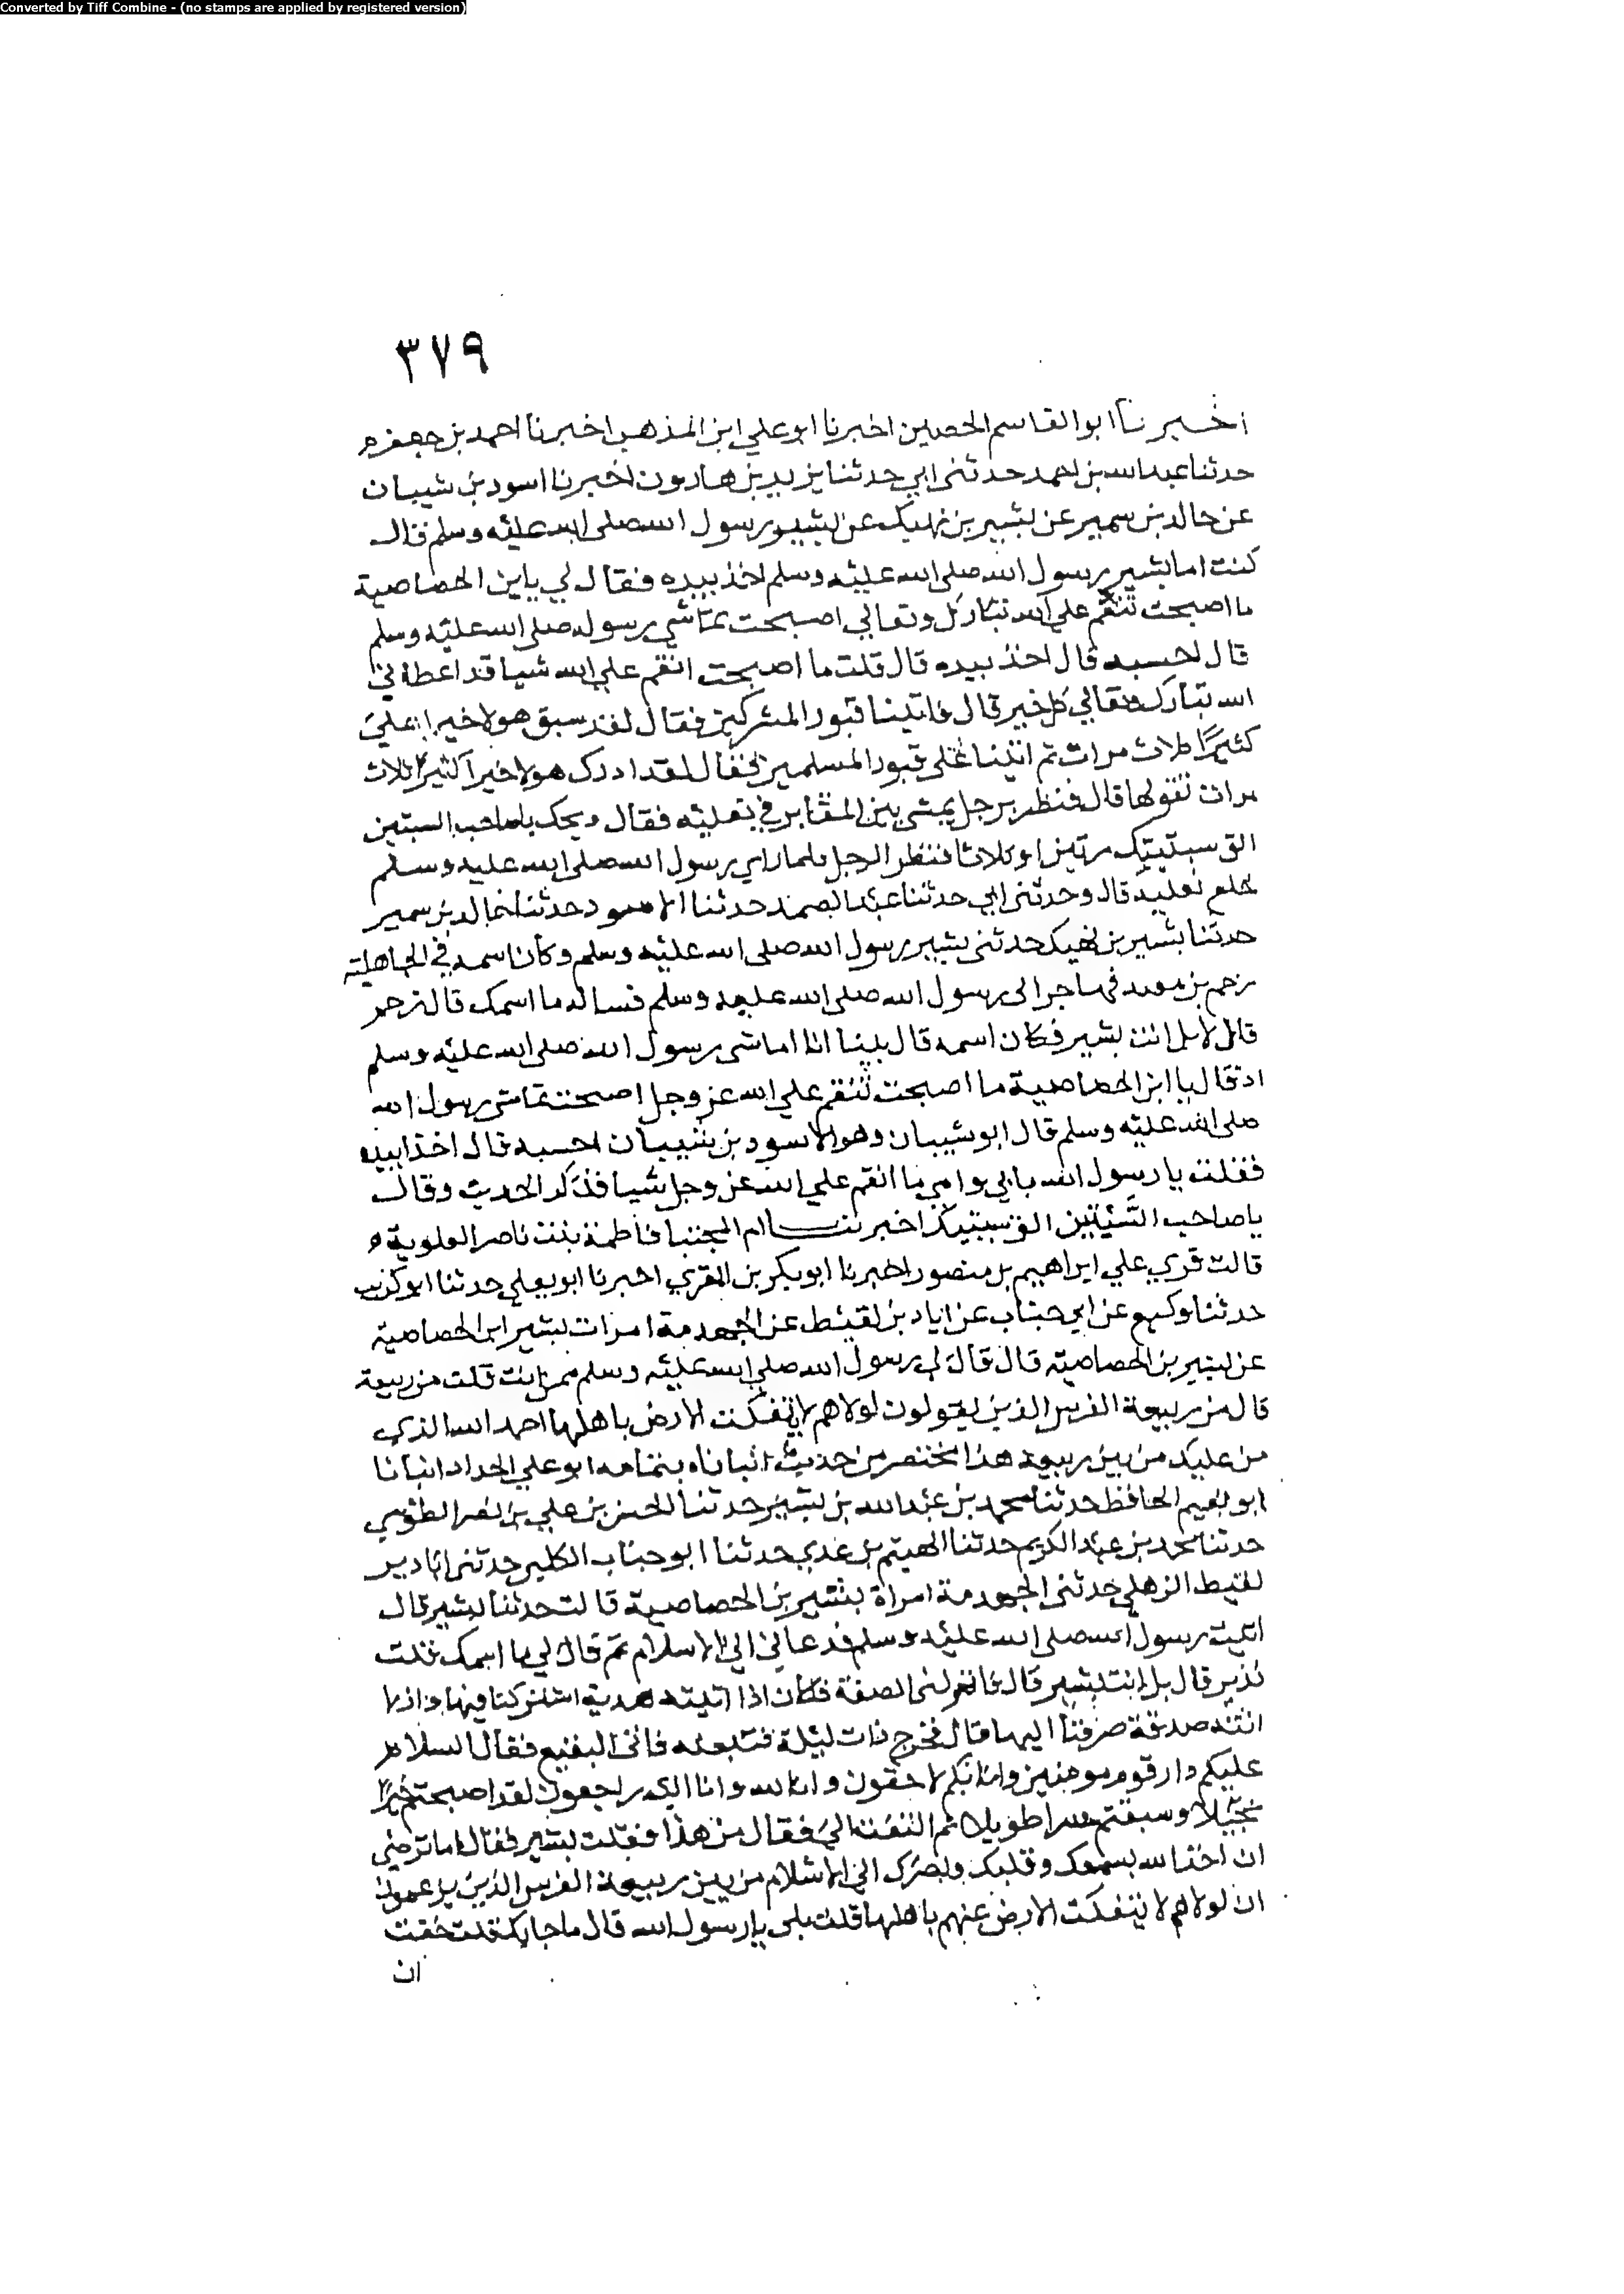 Converted by Tiff Combine - (no stamps are applied by registered version)
٣٧٩
اخبرنا ابوا القاسم الحصين اخبرنا ابو علي ابن المذهب اخبرنا احمد بن جعفر
حدثنا عبد الله بن احمد حدثني ابي حدثنا يزيد بن هارون اخبرنا اسود بن شيبان
عن خالد بن سمير عن بشير بن نهيك عن بشير رسول الله صلى الله عليه وسلم قال
كنت اماشي رسول الله صلى الله عليه وسلم اخذ بيده فقال لي يا بن الخصاصية
ما اصبحت تنقم على الله تبارك وتعالي اصبحت تماشي رسوله صلى الله عليه وسلم
قال احسبه قال اخذ بيده قال قلت ما اصبحت انقم علي الله شيا قد اعطاني
الله تبارك وتعالي كل خير قال فاتينا قبور المشركين فقال لقد سبق هولا خيرا
كثيرًا ثلاث مرات ثم اتينا على قبور المسلمين فقال لقد ادرك هولا خيرا كثيرًا ثلاث
مرات يقولها قال فنظر برجل يمشي بين المقابر في نعليه فقال ويحك يا صاحب السبتين
الق سبتيتك مرتين او ثلاثا فنظر الرجل فلما راي رسول الله صلى الله عليه وسلم
خلع نعليه قال وحدثني ابي حدثنا عبد الصمد حدثنا الاسود حدثنا خالد بن سمير
حدثنا بشير بن نهيك حدثني بشير رسول الله صلى الله عليه وسلم وكان اسمه في الجاهلية
زحم بن معبد فهاجر الى رسول الله صلى الله عليه وسلم فساله ما اسمك قال زحم
قال لا بل انت بشير فكان اسمه قال بينا انا اماشي رسول الله صلى الله عليه وسلم
اذ قال يا ابن الخصاصية ما اصبحت تنقم علي الله عز وجل اصبحت تماشي رسول الله
صلى الله عليه وسلم قال ابو شيبان وهو الاسود بن شيبان احسبه قال اخذا بيده
فقلت يا رسول الله بابي وامي ما انقم علي الله عز وجل شيا فذكر الحديث وقال
يا صاحب السبتين الق سبتيتك اخبرتنا ام المجتبا فاطمة بنت ناصر العلوية
قالت قري علي ابراهيم بن منصور اخبرنا ابو بكر بن المقري اخبرنا ابو يعلي حدثنا ابو كريب
حدثنا وكيع عن ابي جناب عن اياد بن لقيط عن الجهدمة امرات بشير ابن الخصاصية
عن بشير بن الخصاصية قال قال لي رسول الله صلى الله عليه وسلم ممن انت قلت من ربيعة
قال من ربيعة الفرس الذين يقولون لولاهم لاتفكت الارض باهلها احمد الله الذي
من عليك من بين ربيعة هذا مختصر من حديث انباناه بتمامه ابو علي الحداد انبانا
ابو نعيم الحافظ حدثنا محمد بن عبد الله بن بشير حدثنا الحسن بن علي بن نصر الطوسي
حدثنا محمد بن عبد الكريم حدثنا الهيثم بن عدي حدثنا ابو جناب الكلبي حدثني اياد بن
لقيط الذهلي حدثني الجهدمة امراة بشير بن الخصاصية قالت حدثنا بشير قال
اتيت رسول الله صلى الله عليه وسلم فدعاني الي الاسلام ثم قال لي ما اسمك قلت
نذير قال بل انت بشير قال فانزلني الصفة فكان اذا اتيته هدية اشتركنا فيها واذا
اتته صدقة صرفنا اليها قال فخرج ذات ليلة فتبعته فاتى البقيع فقال السلام
عليكم دار قوم مومنين وانا بكم لاحقون وانا لله وانا اليه راجعون لقد اصبحتم خيرًا
بجيلا وسبقتم شرا طويلا ثم التفت الي فقال من هذا فقلت بشير فقال اما ترضي
ان اخذ الله بسمعك وقلبك وبصرك الي الاسلام من بين ربيعة الفرس الذين يزعمون
ان لولاهم لانفكت الارض عنهم باهلها قلت بلى يا رسول الله قال ما جا بك قلت خفت
ان